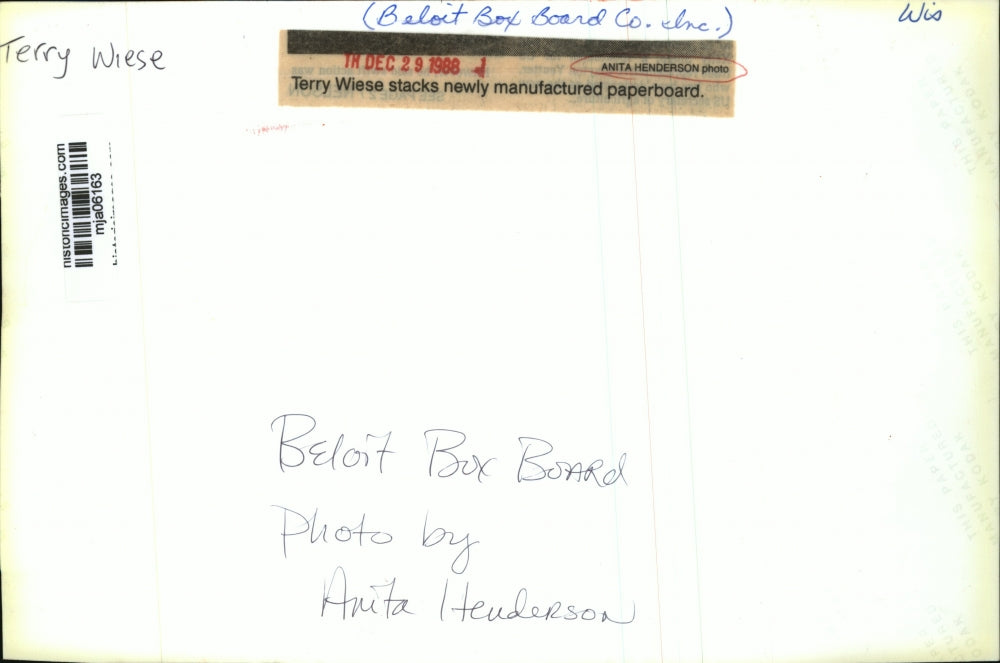 (Beloit Box Board Co. Inc.)
Wis
Terry Wiese
TH DEC 29 1988
ANITA HENDERSON photo
Terry Wiese stacks newly manufactured paperboard.
historicimages.com
mja06163
Beloit Box Board
Photo by
Anita Henderson
THIS PAPER
MANUFACTURED
BY KODAK